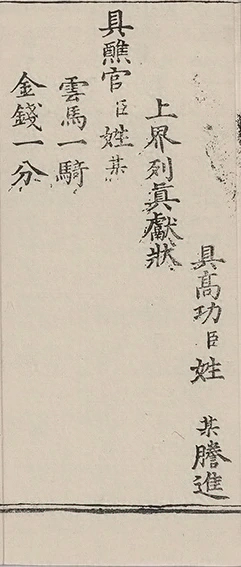 具高功臣姓　某謄進
上界列眞獻狀
具醮官臣姓某
雲馬一騎
金錢一分